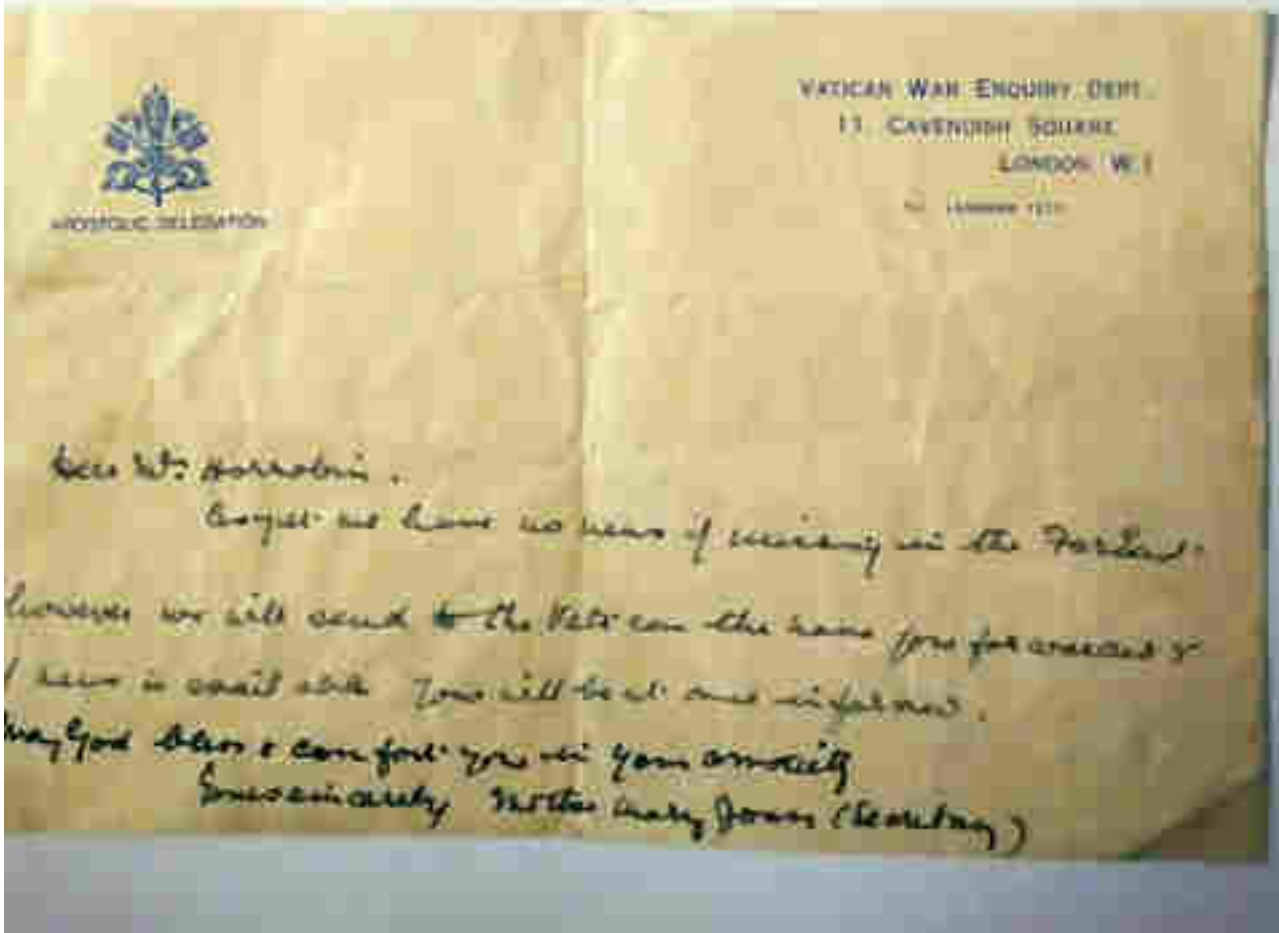 APOSTOLIC DELEGATION
VATICAN WAR ENQUIRY DEPT.
11, CAVENDISH SQUARE
LONDON W.1
Dear Mr. Horrobin.
As yet we have no news of missing in the Far East.
however we will send to the Vatican the name you forwarded &
if news is available you will be at once informed.
May God bless & comfort you in your anxiety
Yours sincerely Mother Mary (Secretary)